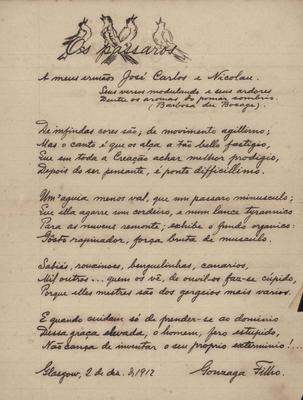 Os passaros
A meus irmãos José Carlos e Nicolau.
Seus versos modulando e seus ardores
Dentre os aromas do pomar sombrio.
(Barbosa du Bocage).
De infindas cores são; de movimento agillimo;
Mas o canto é que os alça a tão bello fastigio,
Que em toda a Creação achar melhor prodigio,
Depois do ser pensante, é ponto difficillimo.
Um'aguia menos val, que um passaro minusculo;
Que ella agarre um cordeiro, e num lance tyrannico
Para as nuvens remonte; exhibe o fundo organico:
Gosto rapinador, força bruta de musculo.
Sabiás, rouxinoes, bengalinhas, canarios,
Mil outros... quem os vê, de ouvil-os faz-se cúpido,
Porque elles mestres são dos gorgeios mais varios.
E quando cuidem só de prender-se ao dominio
Dessa graça elevada, o homem, fero estupido,
Não cança de inventar o seu proprio exterminio!...
Glasgow, 2 de dez. de 1912 Gonzaga Filho.